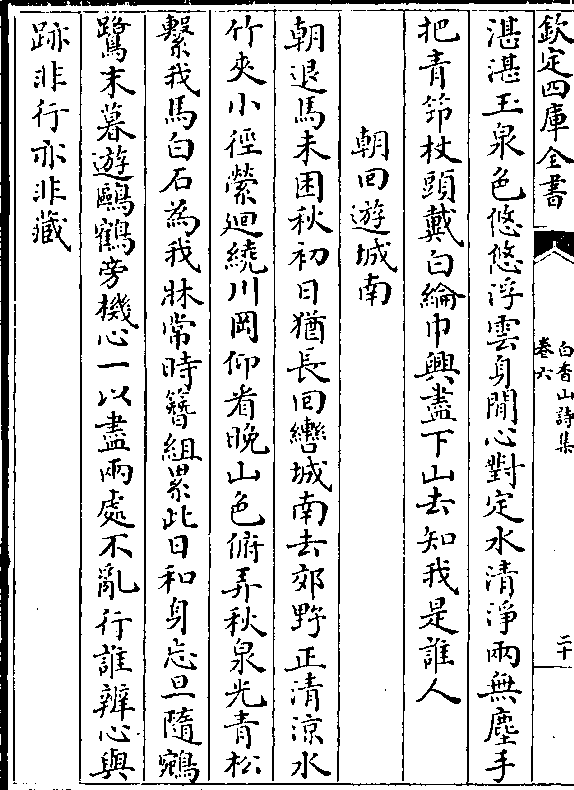 欽定四庫全書
白香山詩集
卷六
二十
湛湛玉泉色悠悠浮雲身閒心對定水清淨兩無塵手
把青笻杖頭戴白綸巾興盡下山去知我是誰人
朝回遊城南
朝退馬未困秋初日猶長回轡城南去郊野正清涼水
竹夾小徑縈迴繞川岡仰看晚山色俯弄秋泉光青松
繫我馬白石為我牀常時簪組累此日和身忘旦隨鵷
鷺末暮遊鷗鶴旁機心一以盡兩處不亂行誰辨心與
跡非行亦非藏